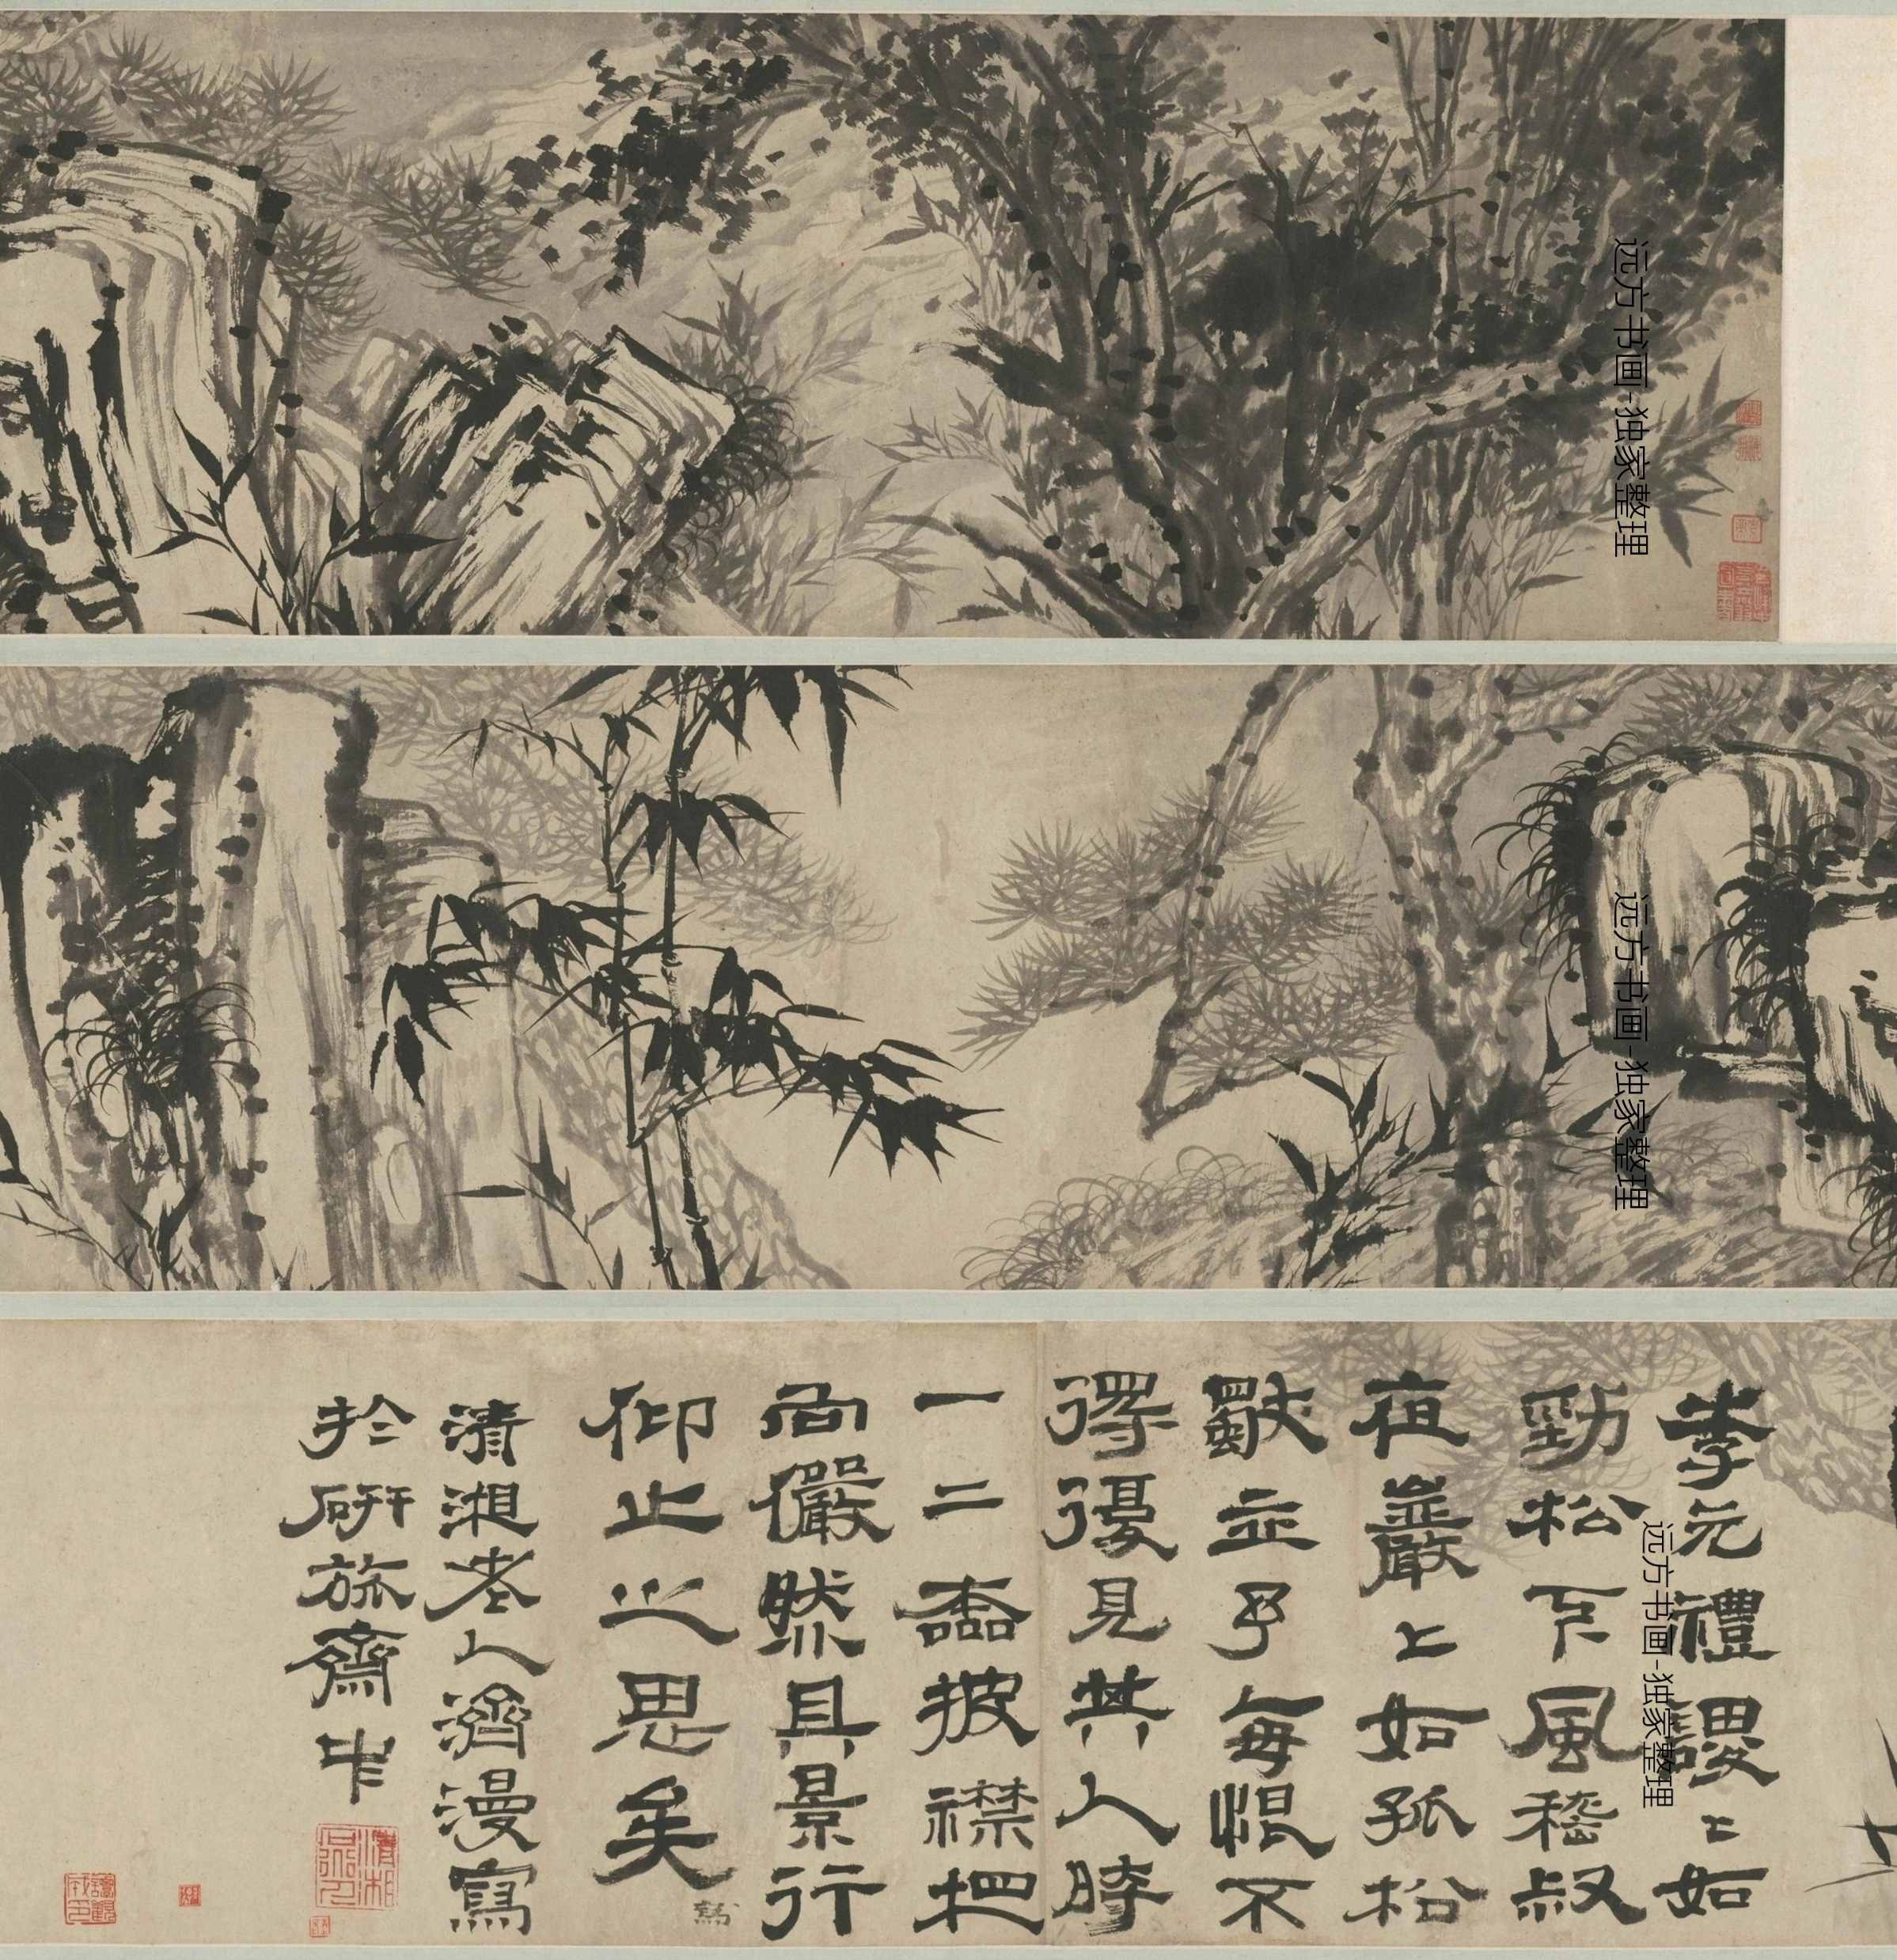 远方书画-独家整理
远方书画-独家整理
李元禮謖〻如
勁松下風嵇叔
夜巖〻如孤松
獨立予每恨不
得復見其人時
一二披襟把
向儼然具景行
仰止之思矣
清湘老人濟漫寫
於研旅齋中
远方书画-独家整理